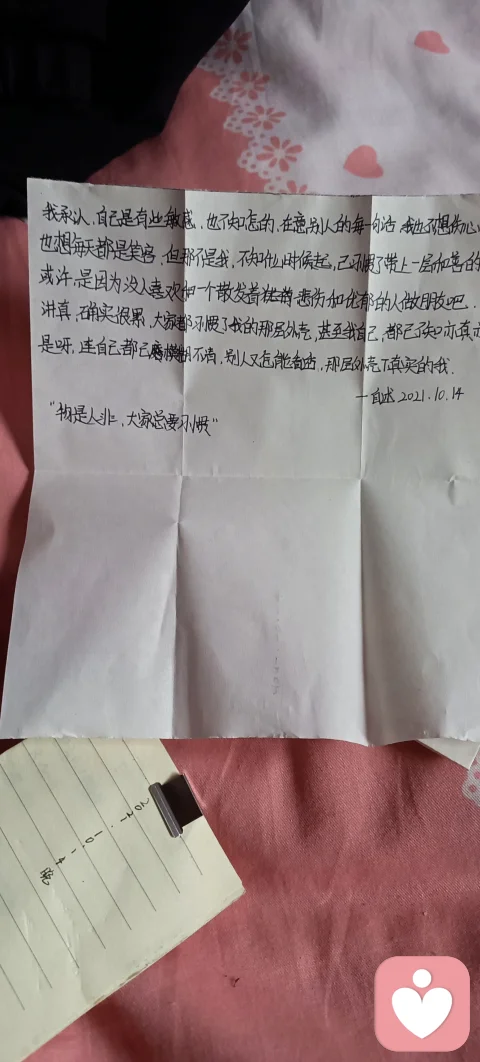 我承认，自己是有些敏感，也不知怎的，在意别人的每一句话，我也不想伤心
也想每天都是笑容，但那不是我，不知什么时候起，已习惯了带上一层和善的
或许，是因为没人喜欢和一个散发着悲伤和忧郁的人做朋友吧．
讲真，确实很累，大家都习惯了我的那层外壳，甚至我自己，都已
是呀，连自己都已模糊不清，别人又怎能看出，那层外壳下真实的我．
一自述 2021.10.14
“物是人非，大家总要习惯”
2021.10.14